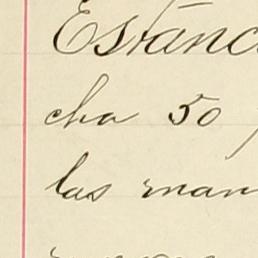 Estânc
cha 50
las man